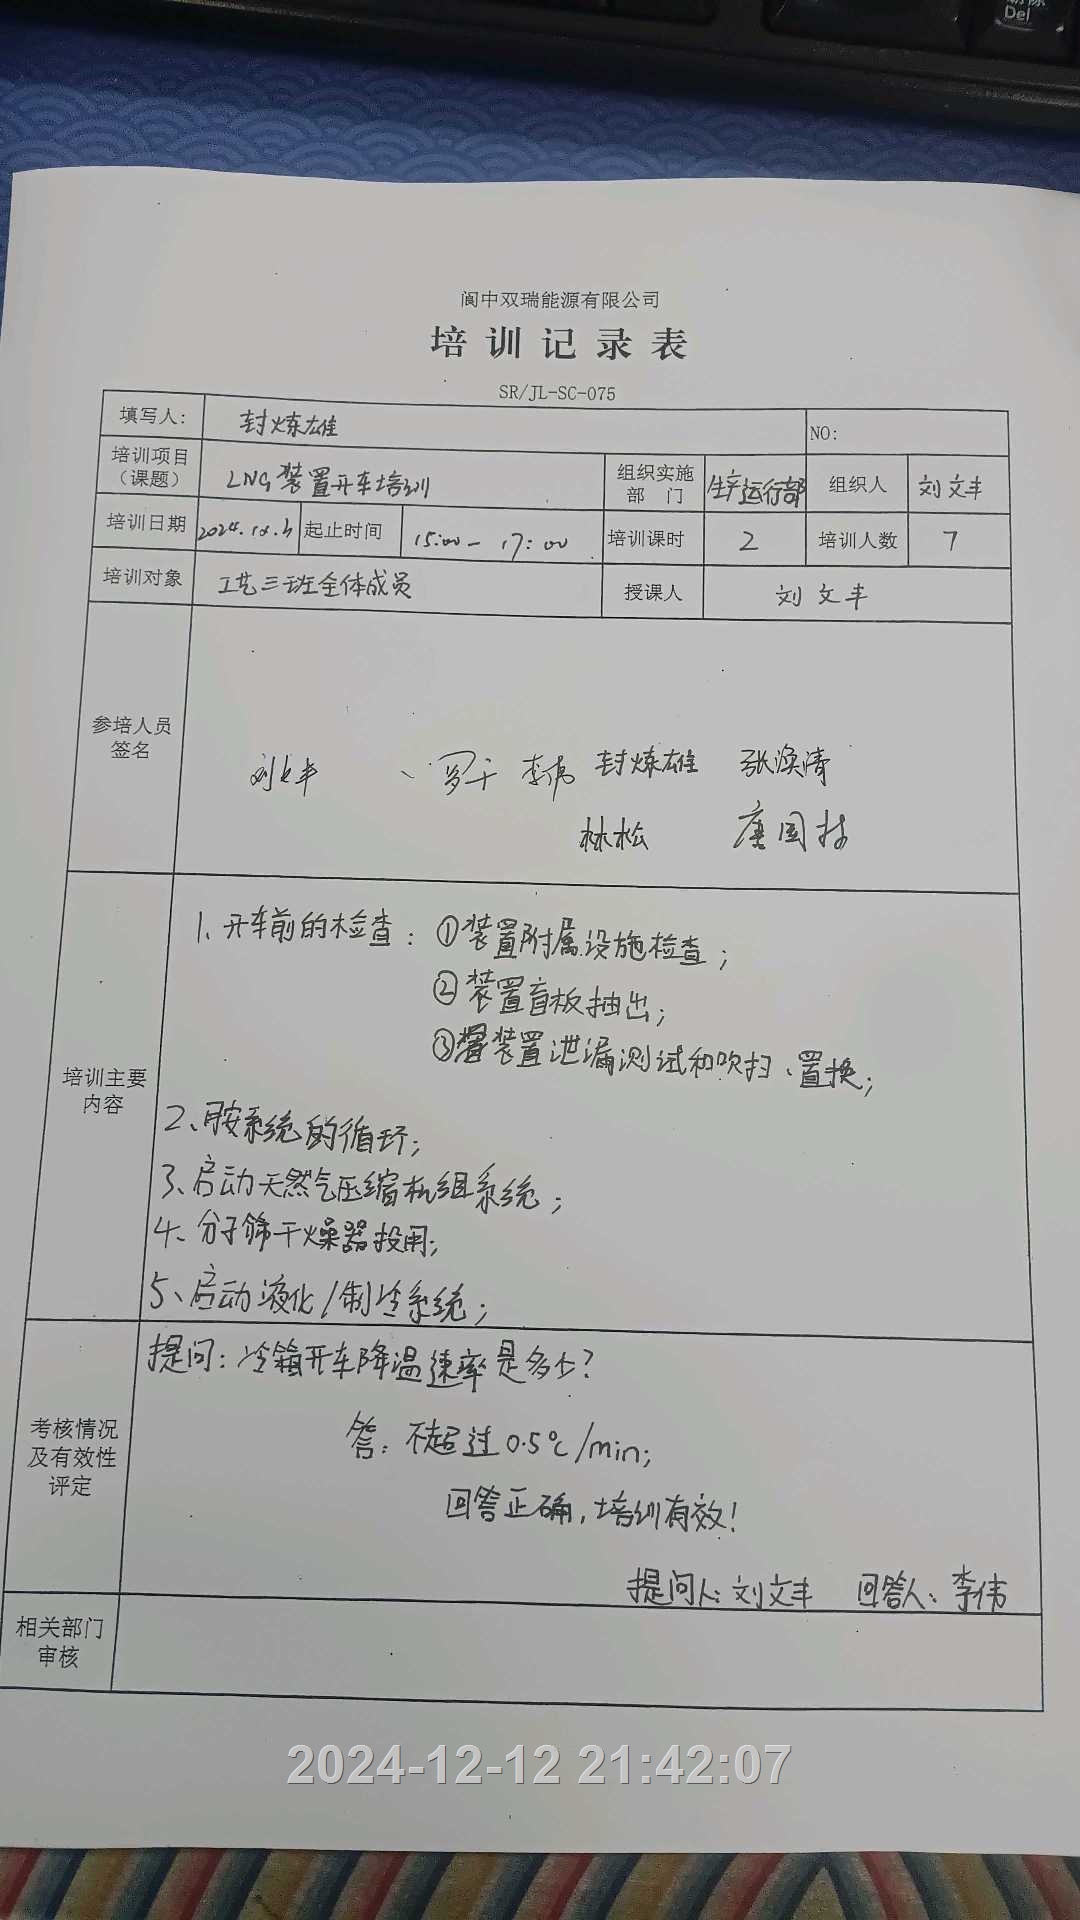 Del
阆中双瑞能源有限公司
培训记录表
SR/JL-SC-075
填写人: 封炼雄 NO:
培训项目（课题） LNG装置开车培训 组织实施部门 生产运行部 组织人 刘文丰
培训日期 2024.12. 起止时间 15:00-17:00 培训课时 2 培训人数 7
培训对象 工艺三班全体成员 授课人 刘文丰
参培人员签名
刘文丰 罗千 李伟 封炼雄 张涣清
林松 唐国林
培训主要内容
1、开车前的检查：①装置附属设施检查；
②装置盲板抽出；
③装置泄漏测试和吹扫、置换；
2、胺系统的循环；
3、启动天然气压缩机组系统；
4、分子筛干燥器投用；
5、启动液化/制冷系统；
考核情况及有效性评定
提问：冷箱开车降温速率是多少？
答：不超过0.5℃/min；
回答正确，培训有效！
提问人：刘文丰 回答人：李伟
相关部门审核
2024-12-12 21:42:07